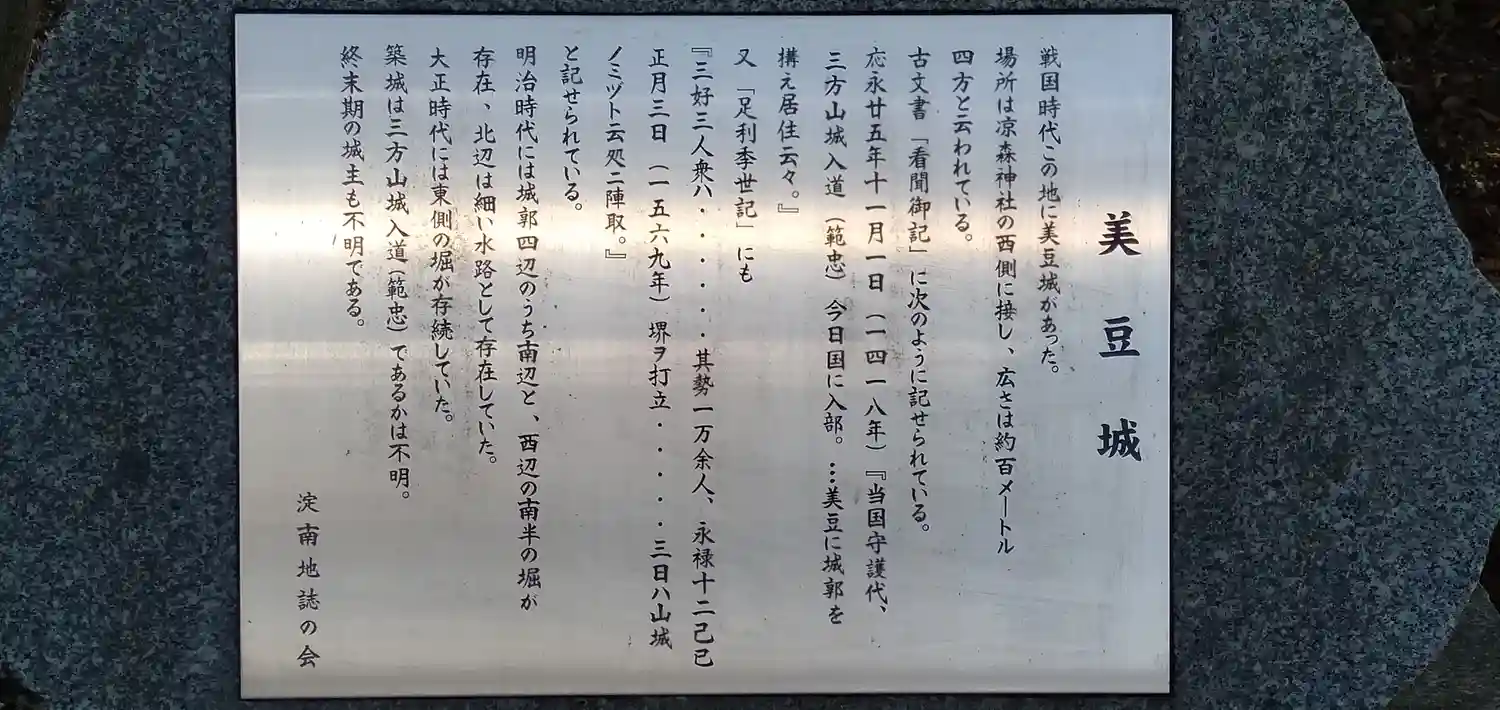 美豆城
戦国時代この地に美豆城があった。
場所は凉森神社の西側に接し、広さは約百メートル
四方と云われている。
古文書「看聞御記」に次のように記せられている。
応永廿五年十一月一日（一四一八年）『当国守護代、
三方山城入道（範忠）今日国に入部。…美豆に城郭を
構え居住云々。』
又「足利季世記」にも
『三好三人衆ハ・・・・・・其勢一万余人、永禄十二己巳
正月三日（一五六九年）堺ヲ打立・・・・・三日ハ山城
ノミヅト云処ニ陣取。』
と記せられている。
明治時代には城郭四辺のうち南辺と、西辺の南半の堀が
存在、北辺は細い水路として存在していた。
大正時代には東側の堀が存続していた。
築城は三方山城入道(範忠)であるかは不明。
終末期の城主も不明である。
淀南地誌の会